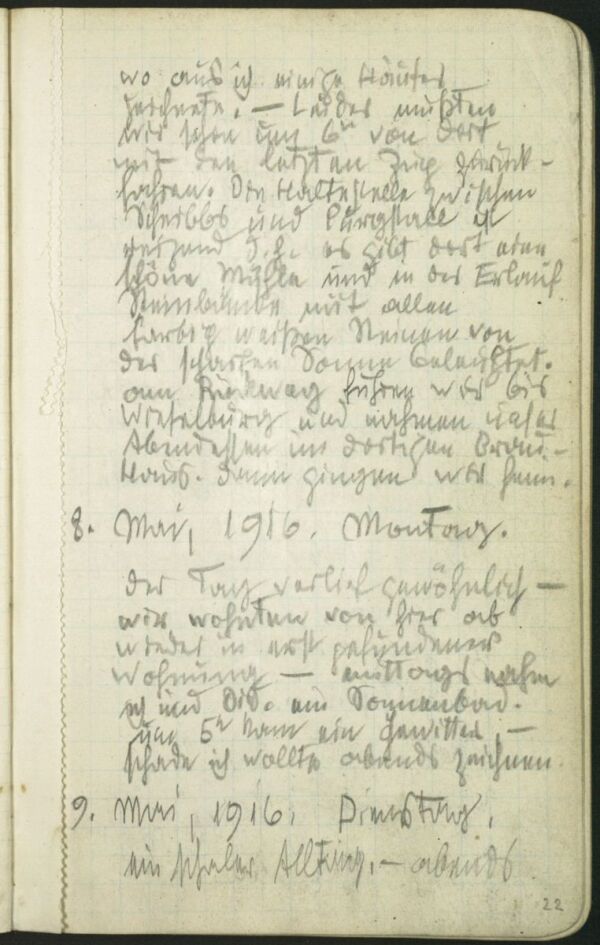 wo aus ich einige Häuser
zeichnete. — Leider mußten
wir schon um 6ʰ von dort
mit den letzten Zug zurück-
fahren. Die Haltestelle zwischen
Scheibbs und Purgstall ist
reizend d.h. es gibt dort eine
schöne Mühle und in der Erlauf
Steinbänke mit allen
farbig weißen Steinen von
der scharfen Sonne beleuchtet.
am Rückweg fuhren wir bis
Wieselburg und nahmen unser
Abendessen im dortigen Brau-
Haus. dann gingen wir heim.
8. Mai, 1916. Montag.
der Tag verlief gewöhnlich —
wir wohnten von hier ab
wieder in erst gefundener
Wohnung — mittags nahm
ich und Dis. ein Sonnenbad.
um 5ʰ kam ein Gewitter, —
schade ich wollte abends zeichnen
9. Mai, 1916. Dienstag.
ein schaler Alltag. — abends
22